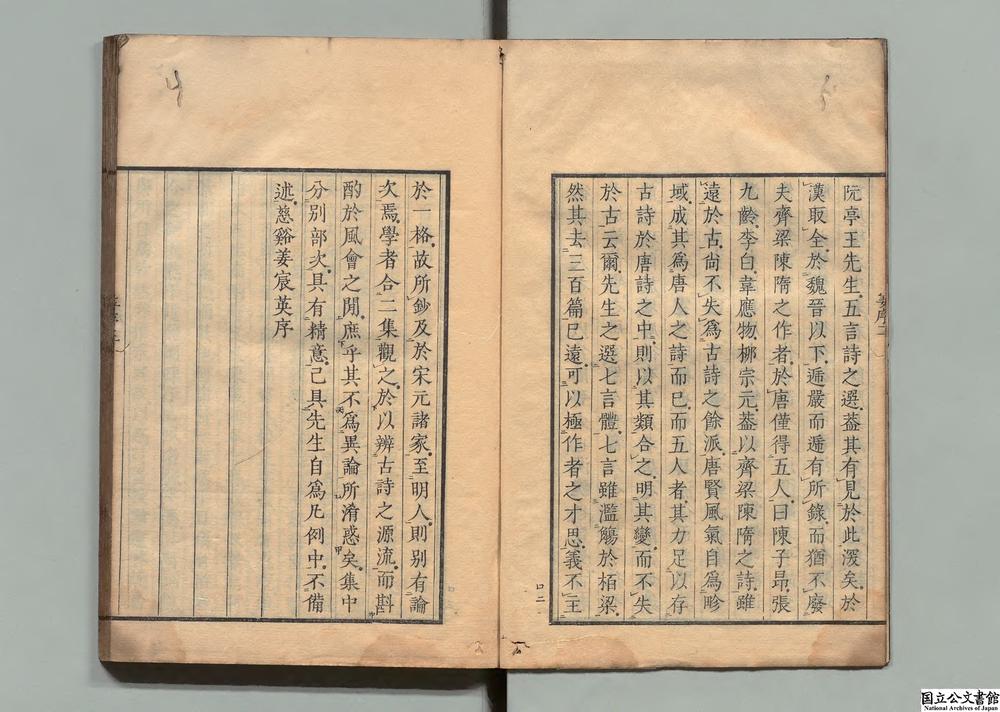 阮亭王先生五言詩之選葢其有見於此深矣於
漢取全於魏晉以下遞嚴而遞有所錄而猶不廢
夫齊梁陳隋之作者於唐僅得五人曰陳子昻張
九齡李白韋應物桺宗元葢以齊梁陳隋之詩雖
遠於古尚不失爲古詩之餘派唐賢風氣自爲畛
域成其爲唐人之詩而已而五人者其力足以存
古詩於唐詩之中則以其類合之明其變而不失
於古云爾先生之選七言體七言雖濫觴於栢梁
然其去三百篇已遠可以極作者之才思義不主
口二
於一格故所鈔及於宋元諸家至明人則别有論
次焉學者合二集觀之於以辨古詩之源流而斟
酌於風會之閒庶乎其不爲異論所淆惑矣集中
分别部次具有精意已具先生自爲凡例中不備
述慈谿姜宸英序
国立公文書館
National Archives of Japan